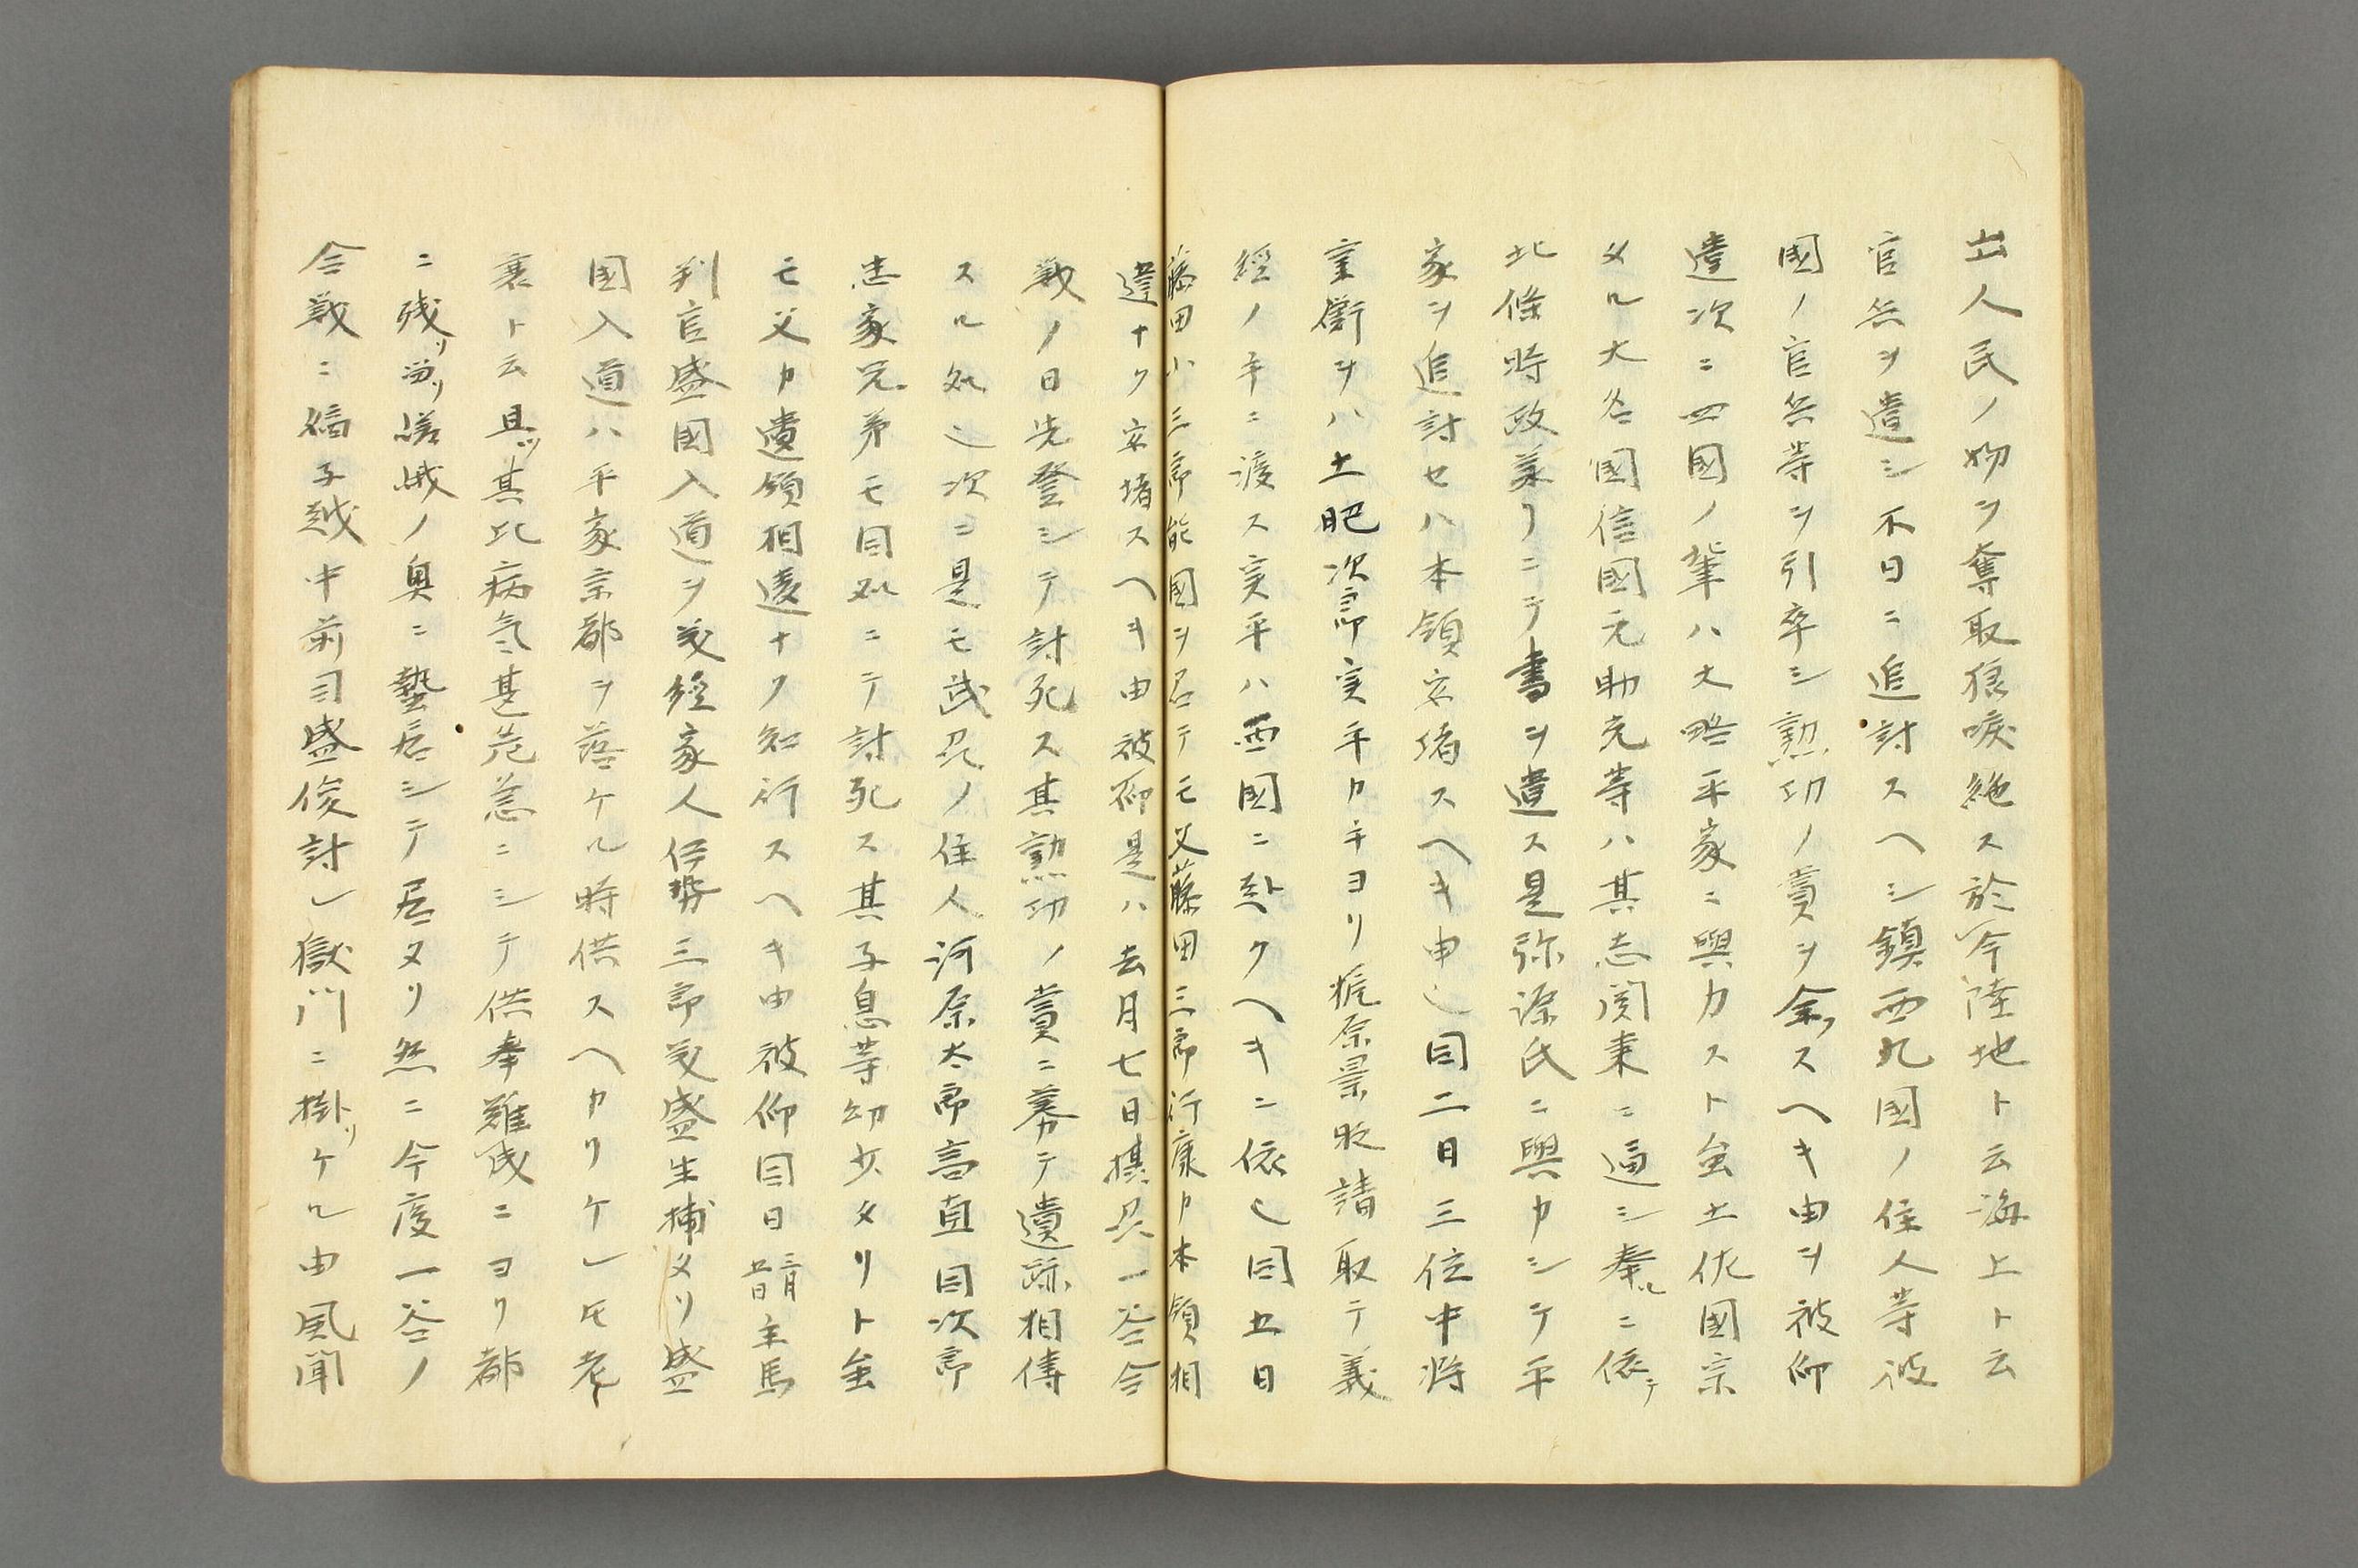 出人民ノ物ヲ奪取狼唳絶ス於今陸地ト云海上ト云
官兵ヲ遣シ不日ニ追討スヘシ鎮西九國ノ住人等彼
國ノ官兵等ヲ引卒シ勲功ノ賞ヲ全フスヘキ由ヲ被仰
遣次ニ四國ノ輩ハ大略平家ニ與力スト𫿉土佐國宗
メル大名國信國元助光等ハ其志関東ニ通シ奉ルニ依テ
北條時政蒙リニテ書ヲ遣ス是弥源氏ニ與力シテ平
家ヲ追討セハ本領安堵スヘキ由也同二日三位中将
重衡ヲハ土肥次郎実平カ手ヨリ梶原景时請取テ義
經ノ手ニ渡ス実平ハ西國ニ趣クヘキニ依也同五日
藤田小三郎能國ヲ召テモ父藤田三郎行康カ本領相
違ナク安堵スヘキ由被仰是ハ去月七日摂州一谷合
戦ノ日先登シテ討死ス其勲功ノ賞ニ募テ遺跡相傳
スル処也次ニ是モ武州ノ住人河原太郎高直同次郎
忠家兄弟モ同処ニテ討死ス其子息等幼少タリト𫿉
モ父カ遺領相違ナク知行スヘキ由被仰同日三月五日晋主馬
判官盛國入道ヲ義經家人伊勢三郎義盛生捕メリ盛
国入道ハ平家京都ヲ落ケル時供スヘカリケレ𪜈老
衰ト云且ツ其比病気甚危急ニシテ供奉難成ニヨリ都
ニ残リ留リ嵯峨ノ奥ニ蟄居シテ居タリ然ニ今度一谷ノ
合戦ニ嫡子越中前司盛俊討レ獄門ニ掛リケル由風聞